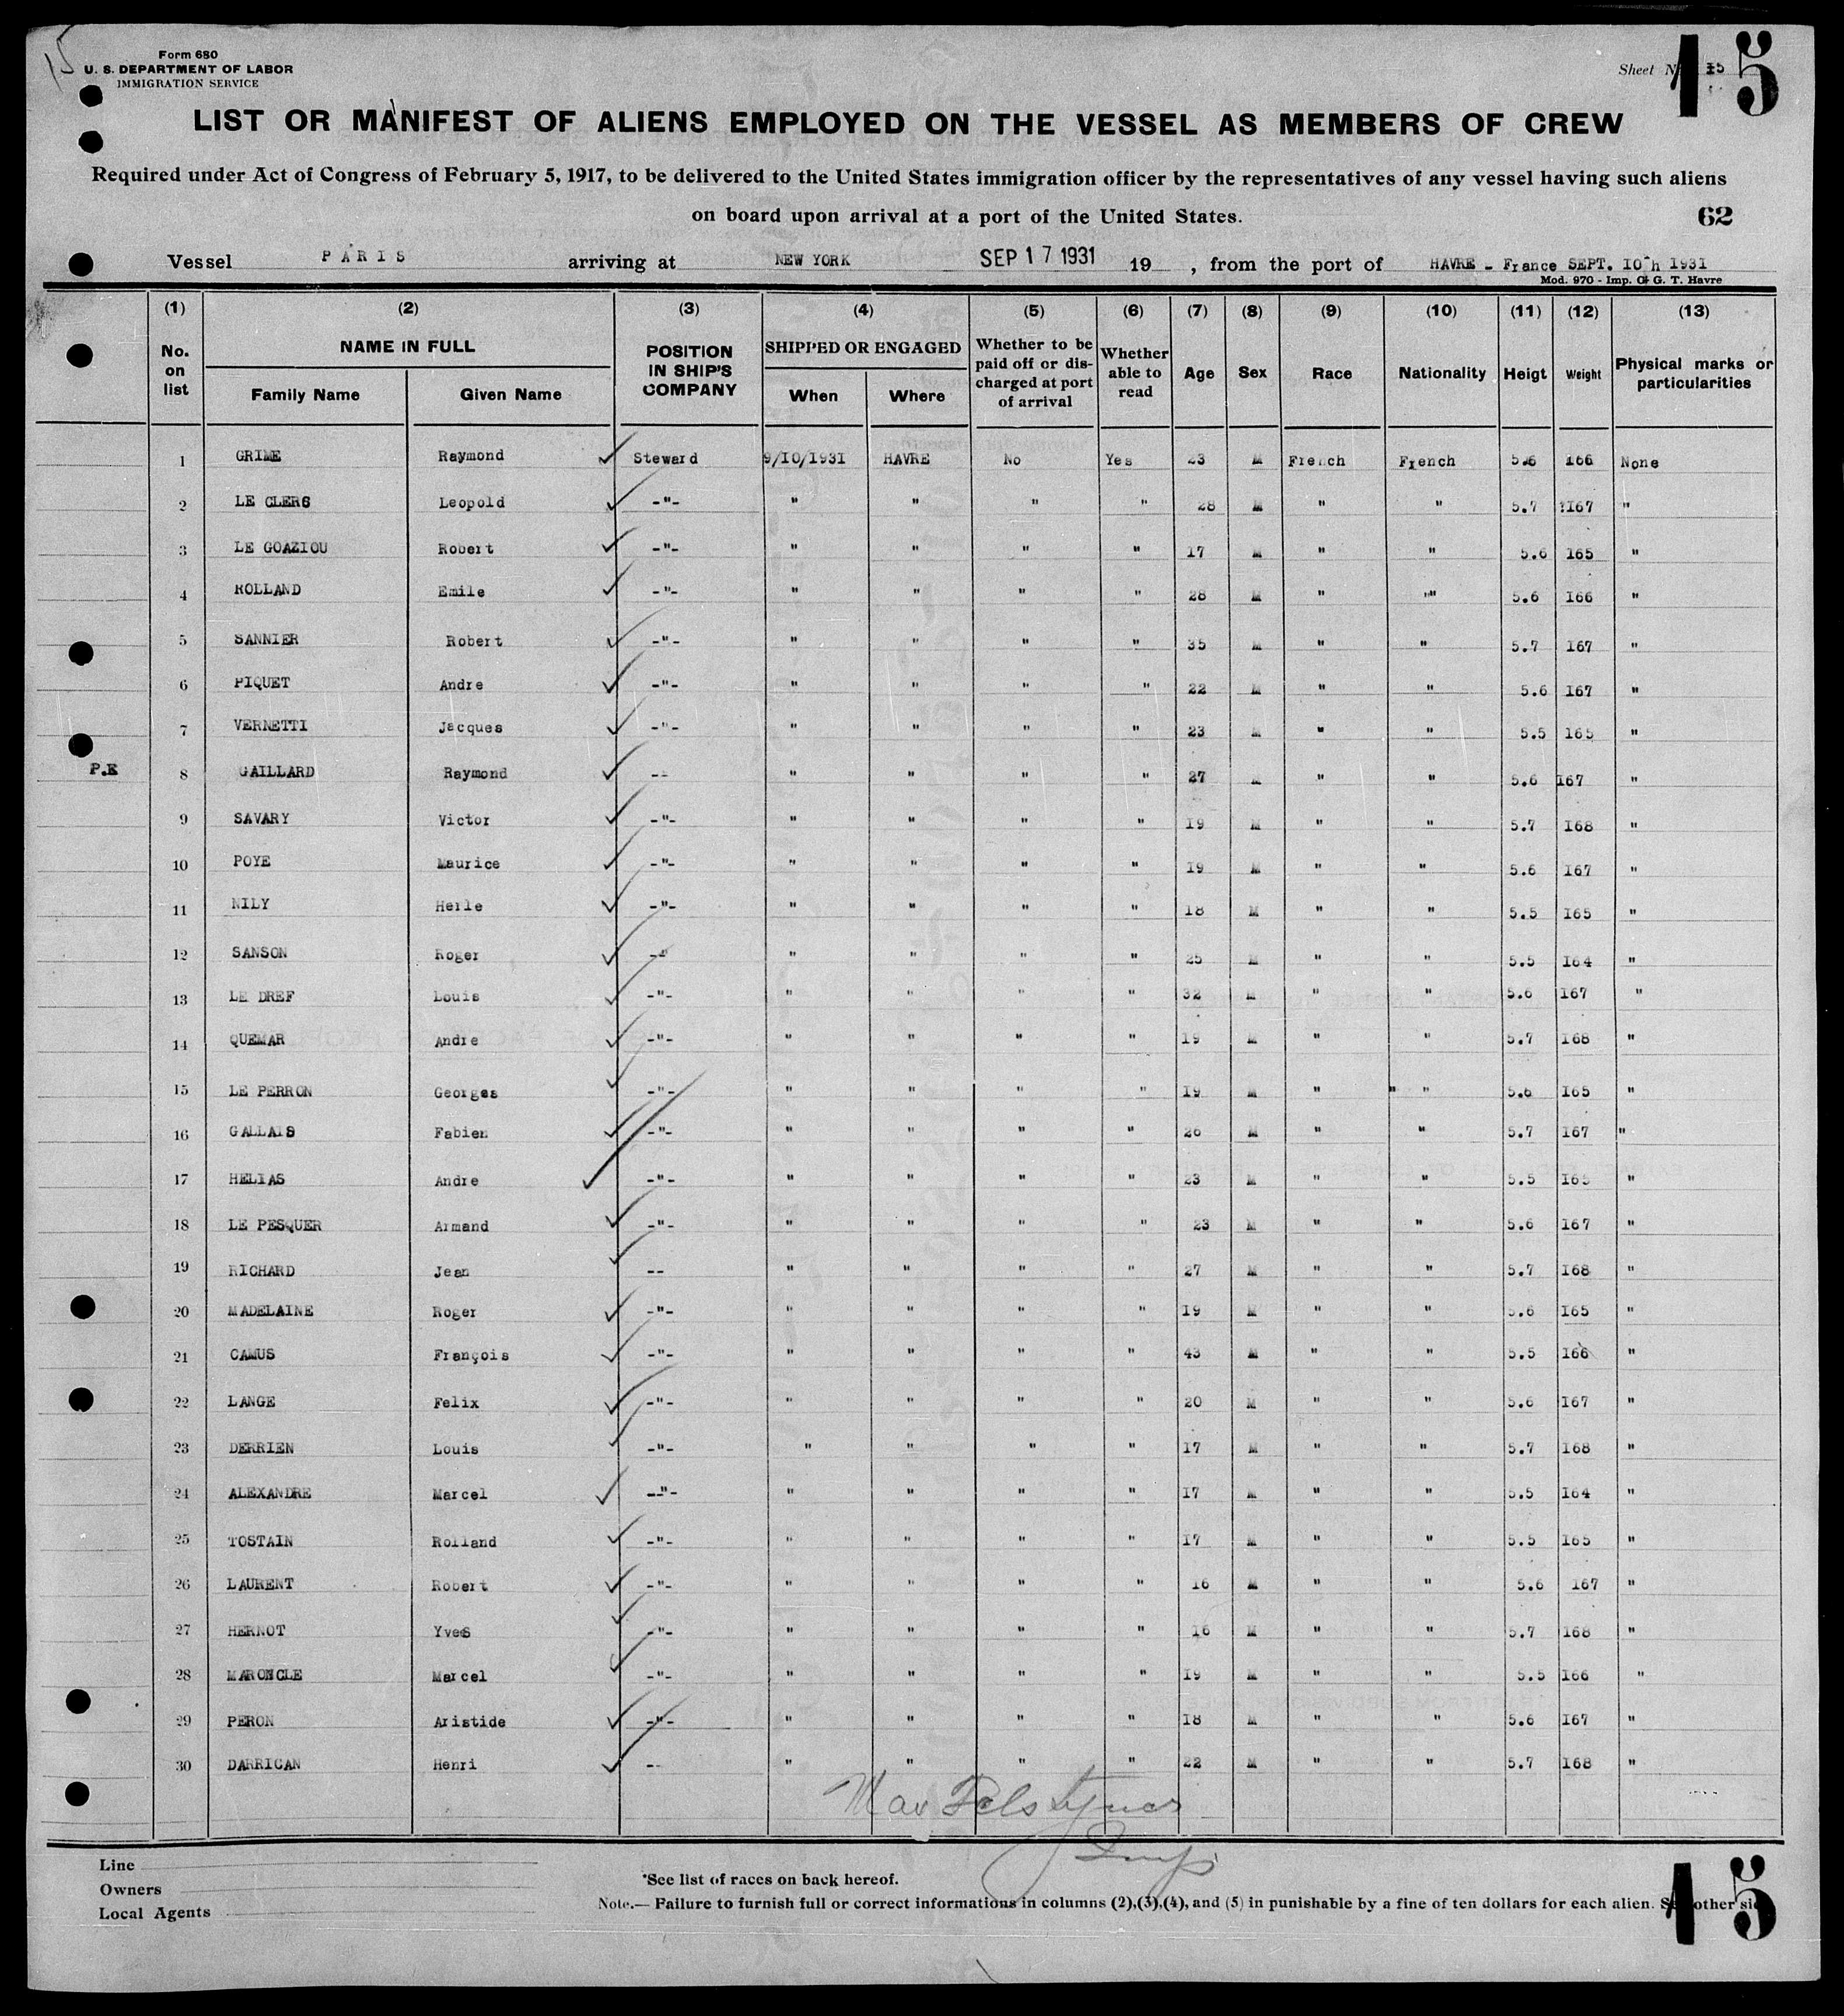 15
Form 680
U. S. DEPARTMENT OF LABOR
IMMIGRATION SERVICE
Sheet No. 15
15
LIST OR MANIFEST OF ALIENS EMPLOYED ON THE VESSEL AS MEMBERS OF CREW
Required under Act of Congress of February 5, 1917, to be delivered to the United States immigration officer by the representatives of any vessel having such aliens
on board upon arrival at a port of the United States.
62
Vessel PARIS arriving at NEW YORK SEP 17 1931 19 , from the port of HAVRE - France SEPT. IO h 1931
Mod. 970 - Imp. G. T. Havre
(1) (2) (3) (4) (5) (6) (7) (8) (9) (10) (11) (12) (13)
No. on list NAME IN FULL Family Name Given Name POSITION IN SHIP'S COMPANY SHIPPED OR ENGAGED When Where Whether to be paid off or discharged at port of arrival Whether able to read Age Sex Race Nationality Heigt Weight Physical marks or particularities
1 GRIME Raymond Steward 9/IO/1931 HAVRE No Yes 23 M French French 5.6 I66 None
2 LE CLERS Leopold -"- " " " " 28 M " " 5.7 I67 "
3 LE GOAZIOU Robert -"- " " " " I7 M " " 5.6 I65 "
4 ROLLAND Emile -"- " " " " 28 M " "" 5.6 I66 "
5 SANNIER Robert -"- " " " " 35 M " " 5.7 I67 "
6 PIQUET Andre -"- " " " " 22 M " " 5.6 I67 "
7 VERNETTI Jacques -"- " " " " 23 M " " 5.5 I65 "
P.E 8 GAILLARD Raymond -- " " " " 27 M " " 5.6 I67 "
9 SAVARY Victor -"- " " " " I9 M " " 5.7 I68 "
10 POYE Maurice -"- " " " " I9 M " " 5.6 I67 "
11 NILY Herle -"- " " " " I8 M " " 5.5 I65 "
12 SANSON Roger -" " " " " 25 M " " 5.5 I64 "
13 LE DREF Louis -"- " " " " 32 M " " 5.6 I67 "
14 QUEMAR Andre -"- " " " " I9 M " " 5.7 I68 "
15 LE PERRON Georges -"- " " " " I9 M " " " 5.6 I65 "
16 GALLAIS Fabien -"- " " " " 26 M " " 5.7 I67 "
17 HELIAS Andre -"- " " " " 23 M " " 5.5 I65 "
18 LE PESQUER Armand -"- " " " " 23 M " " 5.6 I67 "
19 RICHARD Jean -- " " " " 27 M " " 5.7 I68 "
20 MADELAINE Roger -"- " " " " I9 M " " 5.6 I65 "
21 CAMUS François -"- " " " " 43 M " " 5.5 I66 "
22 LANGE Felix -"- " " " " 20 M " " 5.6 I67 "
23 DERRIEN Louis -"- " " " " I7 M " " 5.7 I68 "
24 ALEXANDRE Marcel --"- " " " " I7 M " " 5.5 I64 "
25 TOSTAIN Rolland -"- " " " " I7 M " " 5.5 I65 "
26 LAURENT Robert -"- " " " " I6 M " " 5.6 I67 "
27 HERNOT Yves -"- " " " " I6 M " " 5.7 I68 "
28 MARONCLE Marcel -"- " " " " I9 M " " 5.5 I66 "
29 PERON Aristide -"- " " " " I8 M " " 5.6 I67 "
30 DARRICAN Henri -- " " " " 22 M " " 5.7 I68 "
Line
Owners
Local Agents
*See list of races on back hereof.
Note.— Failure to furnish full or correct informations in columns (2),(3),(4), and (5) in punishable by a fine of ten dollars for each alien. See other side
15